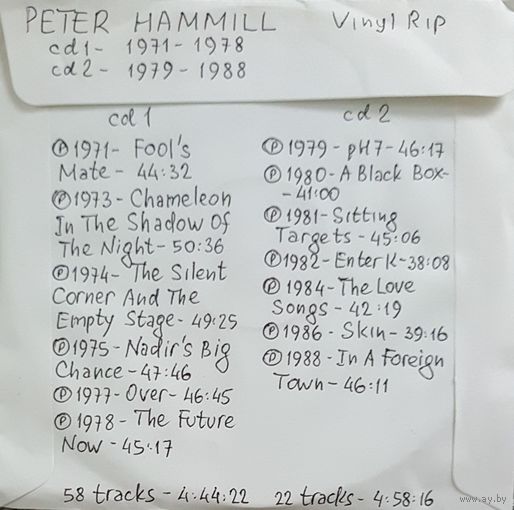 PETER HAMMILL Vinyl Rip
cd1- 1971-1978
cd2- 1979-1988
cd1
Ⓟ1971- Fool's
Mate- 44:32
Ⓟ1973- Chameleon
In The Shadow Of
The Night- 50:36
Ⓟ1974- The Silent
Corner And The
Empty Stage- 49:25
Ⓟ1975- Nadir's Big
Chance- 47:46
Ⓟ1977- Over- 46:45
Ⓟ1978- The Future
Now- 45:17
58 tracks- 4:44:22
cd2
Ⓟ1979- pH7- 46:17
Ⓟ1980- A Black Box-
- 41:00
Ⓟ1981- Sitting
Targets- 45:06
Ⓟ1982- Enter K- 38:08
Ⓟ1984- The Love
Songs- 42:19
Ⓟ1986- Skin- 39:16
Ⓟ1988- In A Foreign
Town- 46:11
22 tracks- 4:58:16
www.ay.by